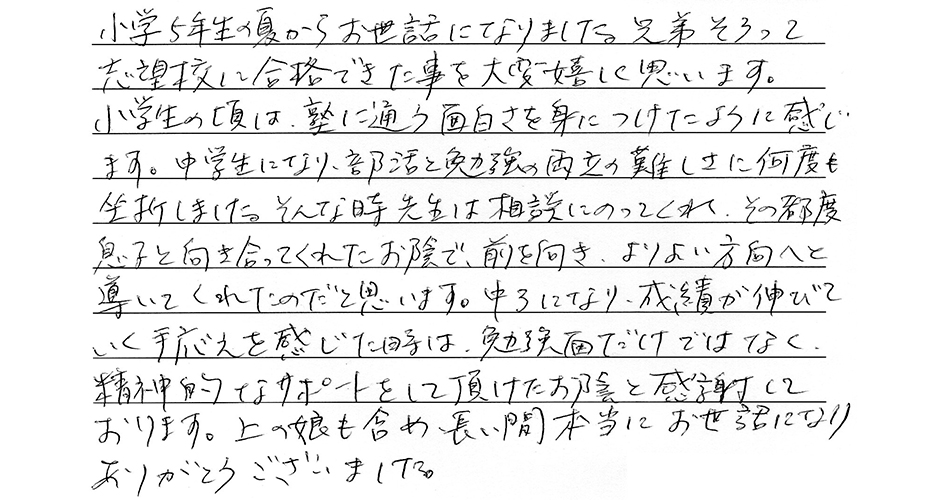 小学5年生の夏からお世話になりました。兄弟そろって
志望校に合格できた事を大変嬉しく思います。
小学生の頃は、塾に通う面白さを身につけたように感じ
ます。中学生になり、部活と勉強の両立の難しさに何度も
挫折しました。そんな時先生は相談にのってくれて、その都度
息子と向き合ってくれたお陰で、前を向き、よりよい方向へと
導いてくれたのだと思います。中3になり、成績が伸びて
いく手応えを感じた時は、勉強面だけではなく、
精神的なサポートをして頂けたお陰と感謝して
おります。上の娘も含め、長い間本当にお世話になり
ありがとうございました。